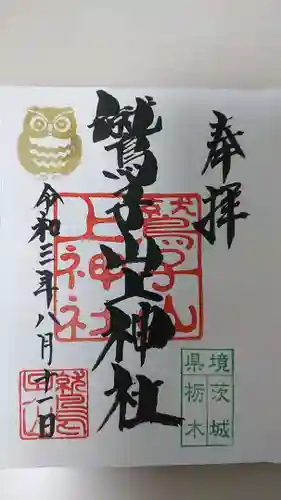 奉拝
鷲子山上神社
令和三年八月十一日
鷲子山
上神社
境茨城
県栃木